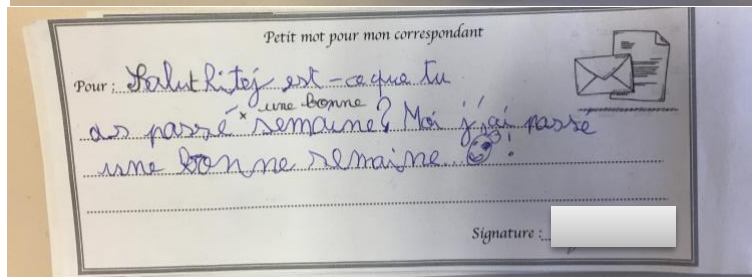 Petit mot pour mon correspondant
Pour : Salut hitoj est-ce que tu
une bonne
as passé × semaine? Moi j'ai passe
une bonne semaine !
Signature :